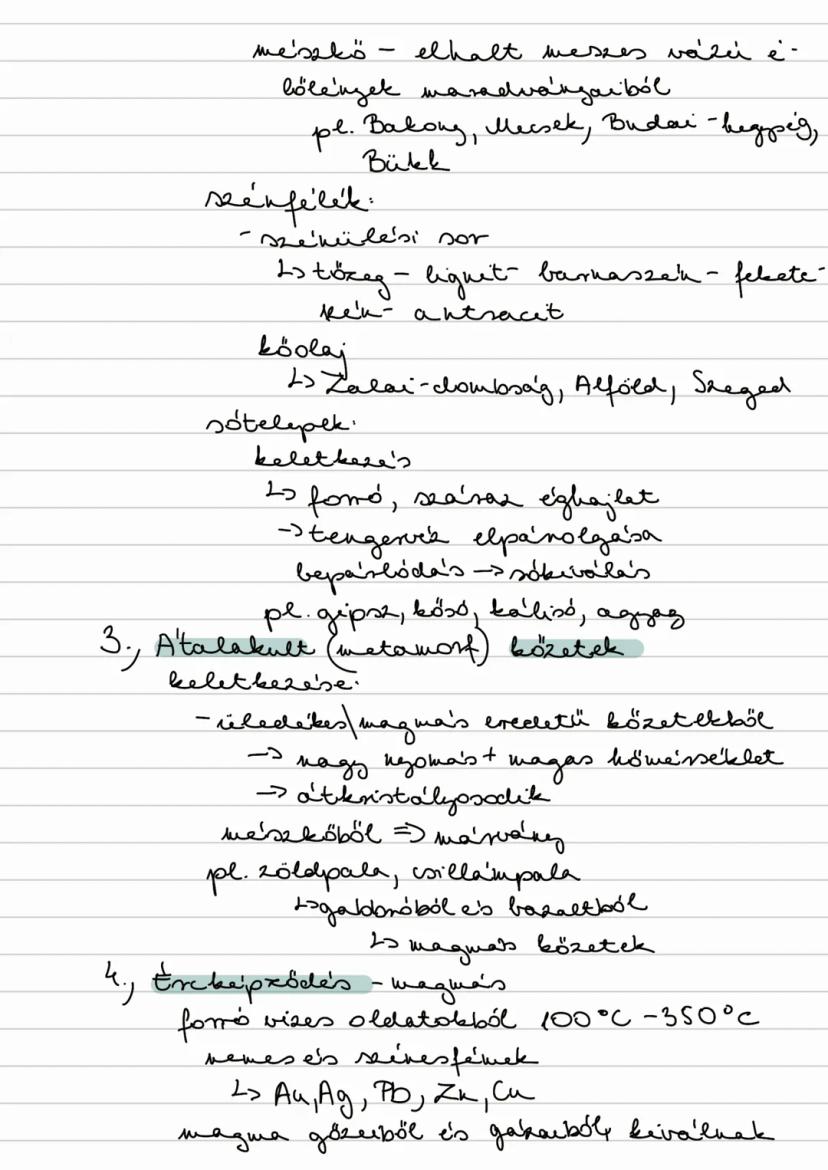 mészkő - elhalt meszes vázú é-
lőlények maradványaiból
pl. Bakony, Mecsek, Budai-hegység,
Bükk
szénfélék:
- szénülési sor
↳ tőzeg - lignit - barnaszén - fekete-
szén - antracit
kőolaj
↳ Zalai-dombság, Alföld, Szeged
sótelepek:
keletkezés
↳ forró, száraz éghajlat
→ tengervíz elpárolgása
bepárlódás → sókiválás
pl. gipsz, kősó, kálisó, agyag
3., Átalakult (metamorf) kőzetek
keletkezése:
- üledékes\magmás eredetű kőzetekből
→ nagy nyomás + magas hőmérséklet
→ átkristályosodik
mészkőből ⇒ márvány
pl. zöldpala, csillámpala
↳ gabbróból és bazaltból
↳ magmás kőzetek
4., Ércképződés - magmás
forró vizes oldatokból 100°C - 350°C
nemes és színesfémek
↳ Au, Ag, Pb, Zn, Cu
magma gőzeiből és gázaiból kiválnak